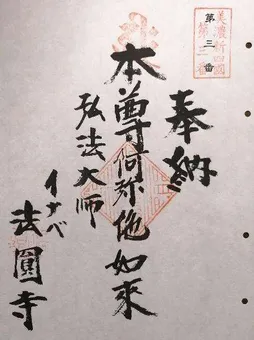 美濃新四國
第三番
奉納
本尊阿弥陀如來
弘法大師
イナベ
法圓寺